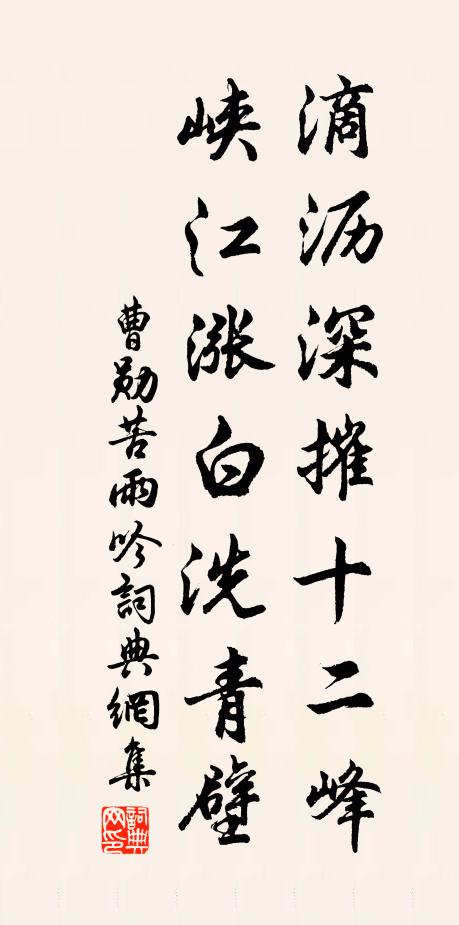 滴沥深摧十二峰
峡江漲白洗青壁
曹勛苦雨吟詞典網集
詞典網印